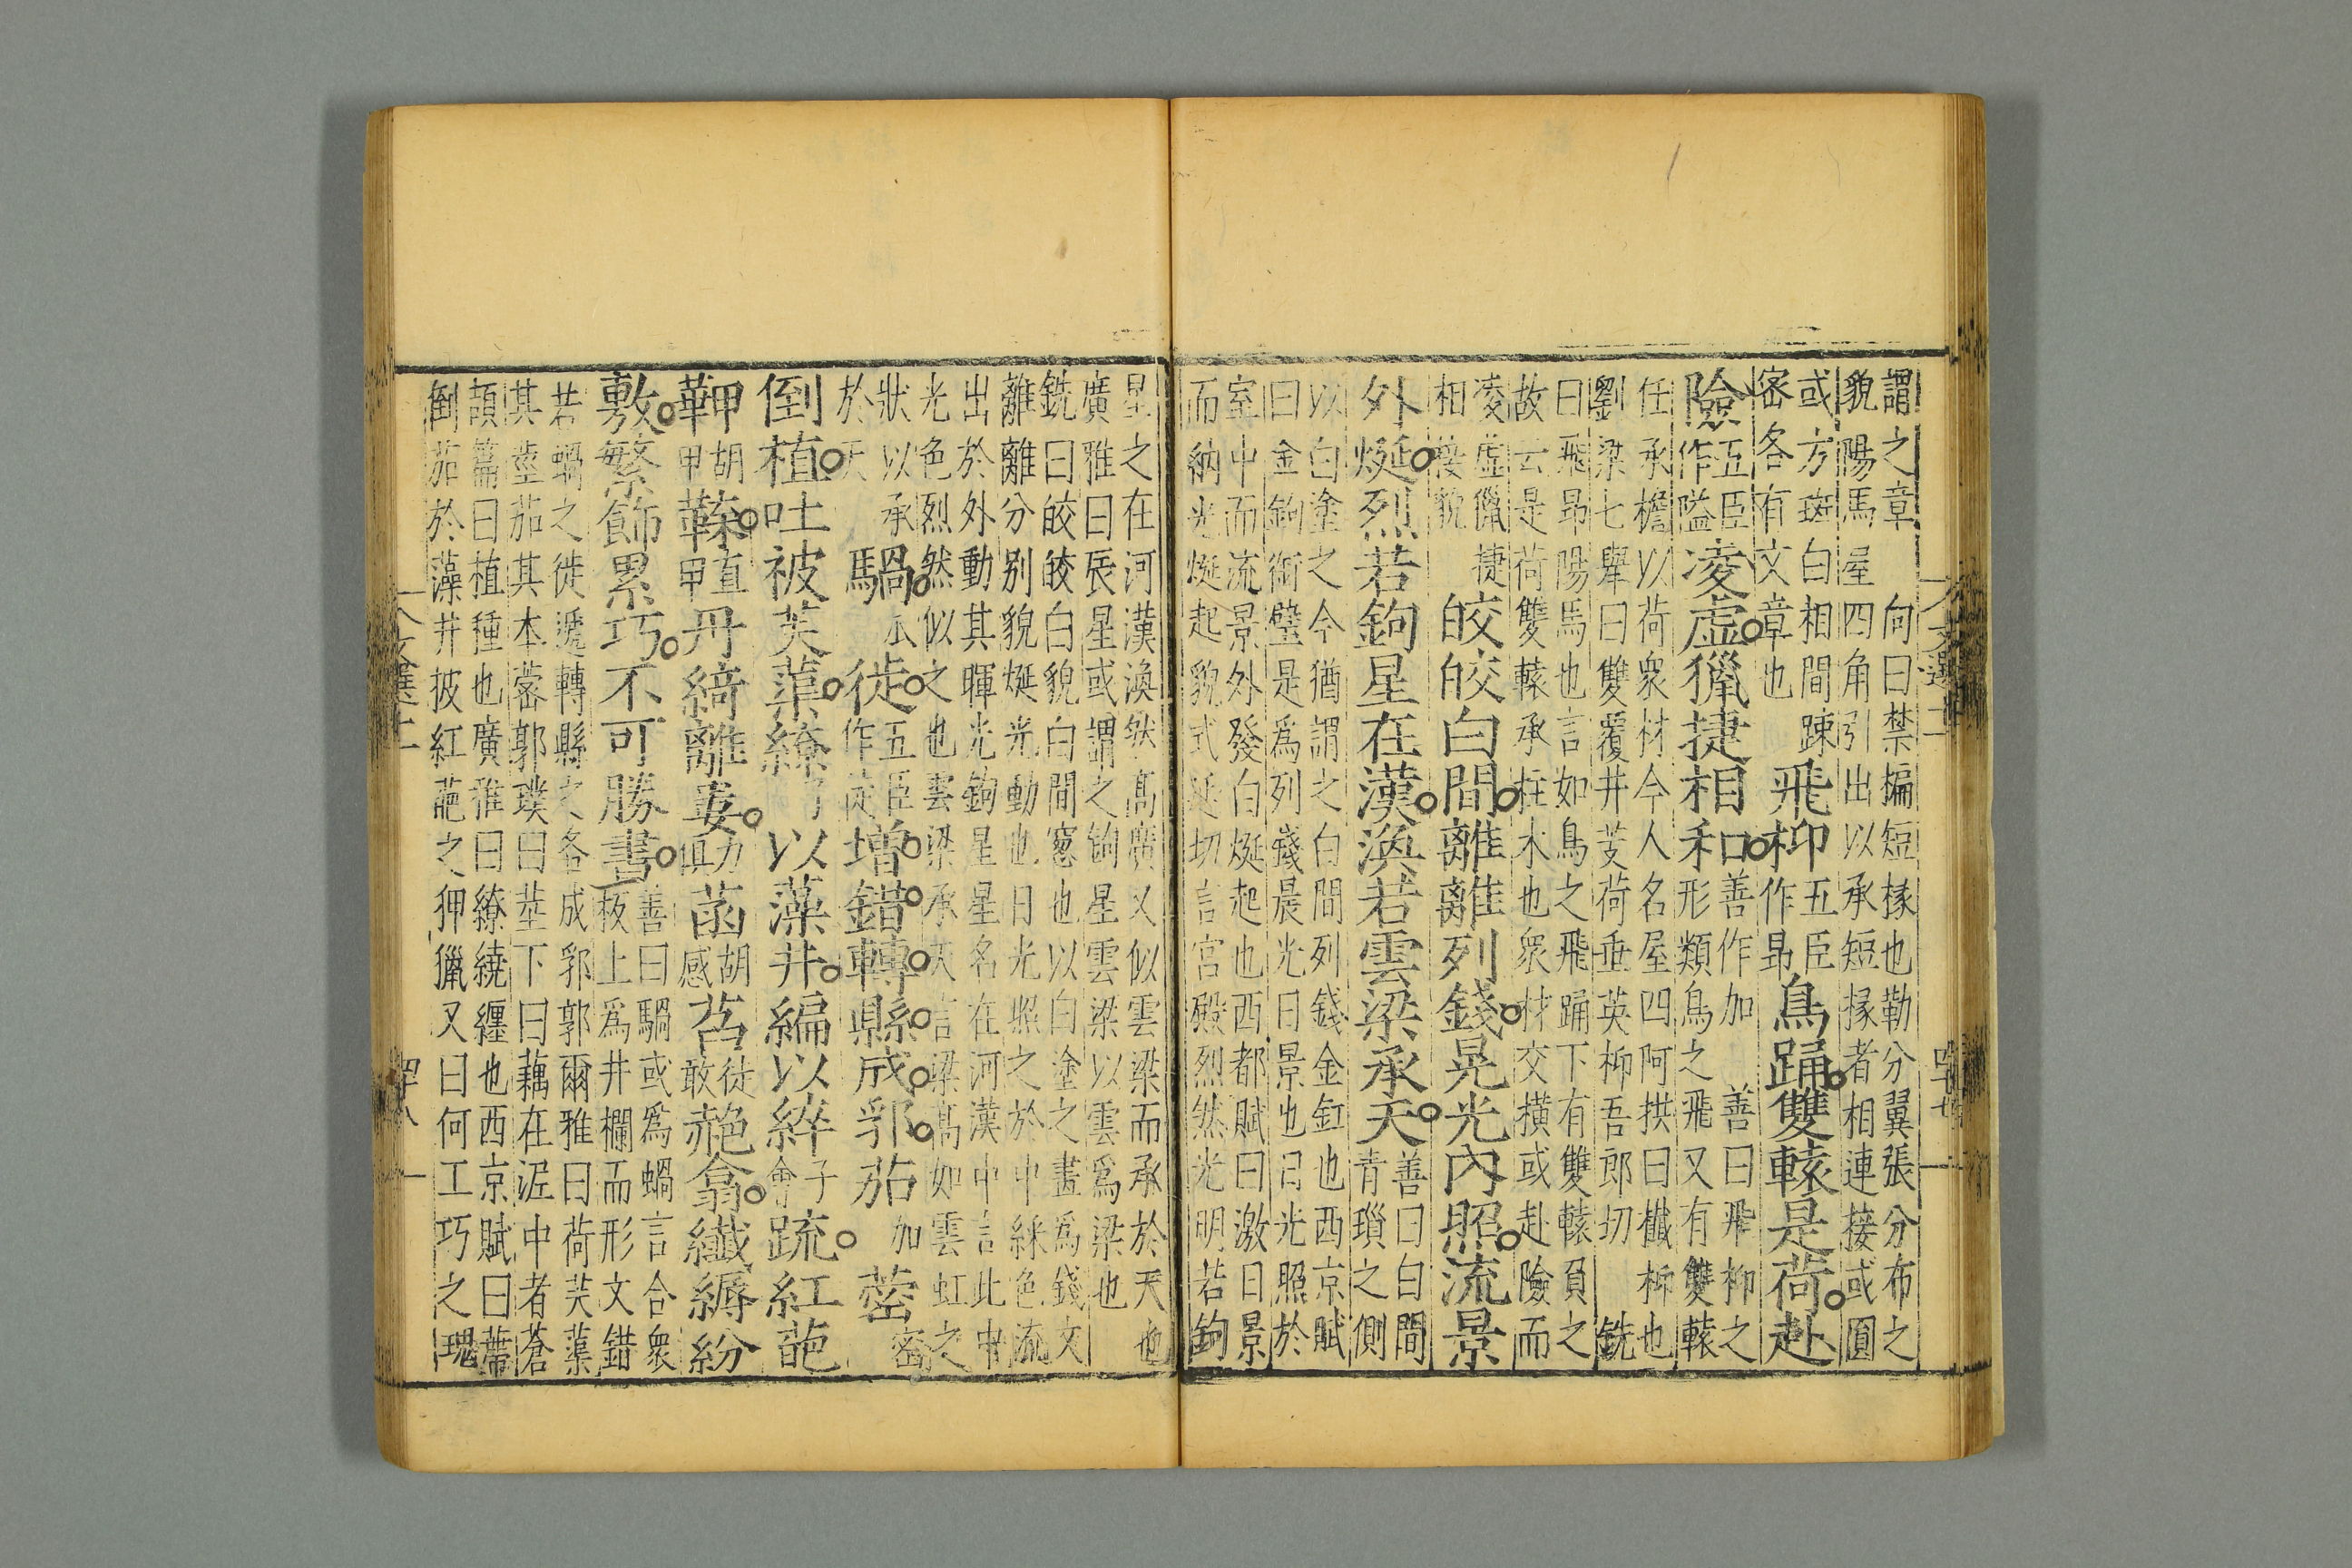 謂之章 向曰禁楄短椽也勒分翼張分布之
貌陽馬屋四角引出以承短椽者相連接或圓
或方斑白相間踈
密各有文章也
飛枊五臣作昂鳥踊雙轅是荷赴
險五臣作隘凌虛獵捷相和善作加 善曰飛枊之
形類鳥之飛又有雙轅
任承檐以荷衆材今人名屋四阿拱曰櫼枊也
劉梁七舉曰雙覆井芰荷垂英枊吾郎切 銑
曰飛昂陽馬也言如鳥之飛踊下有雙轅負之
故云是荷雙轅承柱木也衆材交橫或赴險而
凌虛獵捷
相接貌
皎皎白間離離列錢晃光內照流景
外烻烈若鉤星在漢渙若雲梁承天善曰白間
青瑣之側
以白塗之今猶謂之白間列錢金釭也西京賦
曰金釭銜璧是爲列錢晨光日景也日光照於
室中而流景外發白烻起也西都賦曰激日景
而納光烻起貌式延切言宮殿烈然光明若鉤
星之在河漢渙然高廣又似雲梁而承於天也
廣雅曰辰星或謂之鉤星雲梁以雲爲梁也
銑曰皎皎白貌白間窻也以白塗之畫爲錢文
離離分別貌烻光動也日光照之於中綵色流
出於外動其暉光鉤星星名在河漢中言此中
光色烈然似之也雲梁承天言梁高如雲虹之
狀以承
於天
騧瓜徙五臣作徒增錯轉縣成郛茄加蔤密
倒植吐被芙蕖繚了以藻井編以綷子會疏紅葩
鞞胡甲鞢直甲丹綺離婁勔菡胡感萏徒敢赩翕纖縟紛
敷繁飾累巧不可勝書善曰騧或爲蝸言合衆
板上爲井欄而形文錯
若蝸之徙遞轉縣之各成郛郭爾雅曰荷芙蕖
其莖茄其本蔤郭璞曰莖下曰藕在泥中者蒼
頡篇曰植種也廣雅曰繚繞纒也西京賦曰蔕
倒茄於藻井披紅葩之狎獵又曰何工巧之瑰
文選十一
四十七
文選十一
四十八